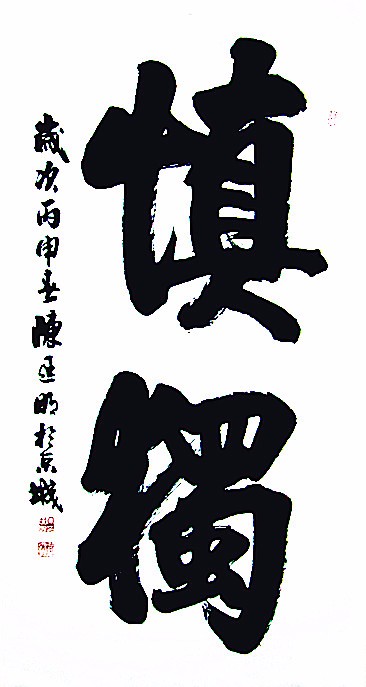 慎獨
歲次丙申春陳匡明於京城